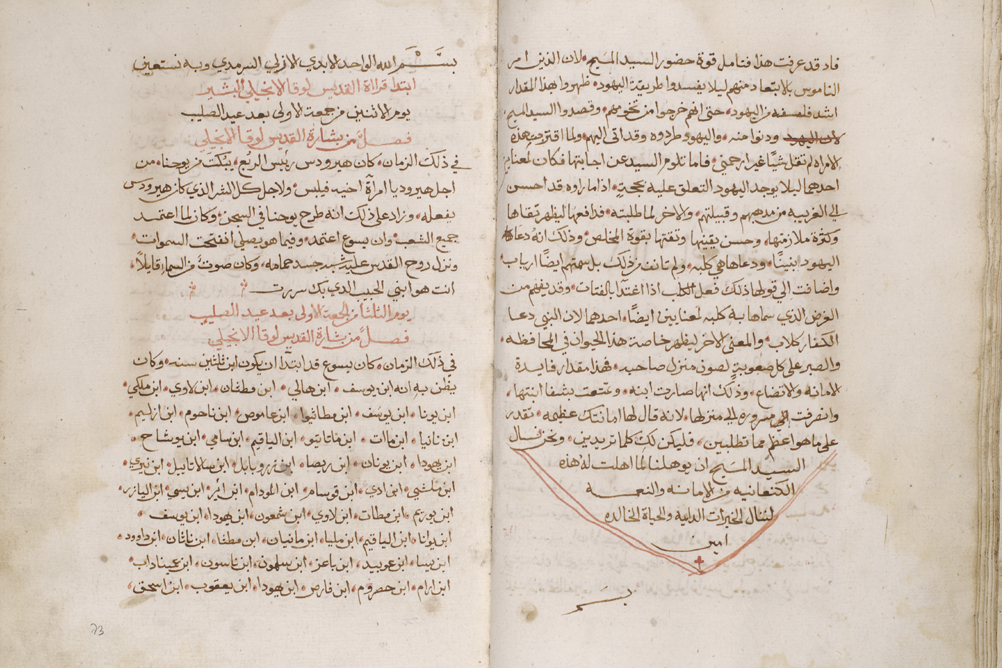 قاد قد عرفت هذا فتامل قوة حضور السيد المسيح لان الذين امر
الناموس بالابتعاد منهم ليلا يفسدوا طريقة اليهود ظهروا هذا المقدار
اشد فلسفه من اليهود حتى انهم خرجوا من تخومهم وقصدوا السيد المسيح
لان اليهود ودنوا منه واليهود طردوه وقد اتى اليهم ولما اقتربت هذه
الامراه لم تقل شيًا غير ارحمني فاما تلوم السيد عن اجابتها فكان لمعنيين
احدهما ليلا يوجد اليهود التعلق عليه بحجة اذا ما راوه قد احسن
الى الغريبه من مدهبهم وقبيلتهم والاخر لما طلبته فدافعها ليظهر تقاها
وكثرة ملازمتها وحسن يقينها وثقتها بقوة المخلص وذلك انه دعا
اليهود ابنينًا ودعاها هي كلبه ولم تانف من ذلك بل سمتهم ايضًا ارباب
واضافت الى قولها ذلك فعل الكلب اذا اغتدا بالفتات وقد يفهم من
الغرض الذي سماها به كلبه لمعنايين ايضًا احدها لان النبي دعا
الكفار كلاب والمعنى الاخر ليظهر خاصة هذا الحيوان في المحافظه
والصبر على كل صعوبةٍ لصون منزل صاحبه فهذا مقدار فايدة
الامانه والاتضاع وذلك انها صارت ابنه وتمتعت بشفا ابنتها
وانصرفت الى مسروره الى منزلها لانه قال لها امانتك عظيمه تقدر
على ما هو اعظم مما تطلبين فليكن لك كلما تريدين ونحن نسال
السيد المسيح ان يوهلنا لما اهلت له هذه
الكنعانيه من الامانه والنعمه
لننال الخيرات الدايمه والحياة الخالده
امين
بســم الله الواحد الابدي الازلي السرمدي وبه نستعين
ابتدا قراة القديس لوقا الانجيلي البشير
يوم الاثنين من جمعت الاولى بعد عيد الصليب
فصل من بشارة القديس لوقا الانجيلي
في ذلك الزمان كان هيرودس رئيس الربع يبكت من يوحنا من
اجل هيروديا امرآة اخيه فيلبس ولاجل كل الشر الذي كان هيرودس
يفعله وزاد على ذلك انه طرح يوحنا في السجن وكان لما اعتمد
جميع الشعب وان يسوع اعتمد وفيما هو يصلي انفتحت السموات
ونزل روح القدس عليه شبه جسد حمامه وكان صوت من السما قايلًا
انت هو ابني الحبيب الدي بك سررت
يوم الثلثا من الجمعة الاولى بعد عيد الصليب
فصل من بشارة القديس لوقا الانجيلي
في ذلك الزمان كان يسوع قد ابتدا ان يكون ابن ثلثين سنه وكان
يظن به انه ابن يوسف ابن هالي ابن مطثان ابن لاوي ابن ملكي
ابن يونا ابن يوسف ابن مطاثيا ابن عاموص ابن ناحوم ابن ازليم
ابن نانيا ابن ماات ابن ماتاتيو ابن الياقيم ابن سامي ابن يوشاح
ابن يهودا ابن يونان ابن ريصا ابن زروبابل ابن صلاتاييل ابن نيري
ابن ملشي ابن ادي ابن قوسام ابن المودام ابن اير ابن يسي ابن اليازر
ابن يوريم ابن مطات ابن لاوي ابن شمعون ابن يهودا ابن يوسف
ابن يوانا ابن الياقيم ابن مليا ابن مانيان ابن مطثا ابن ناثان ابن داوود
ابن يسا ابن عوبيد ابن باعز ابن سلمون ابن ناسون ابن عميناداب
ابن ارام ابن حصروم ابن فارص ابن يهودا ابن يعقوب ابن اسحق
73